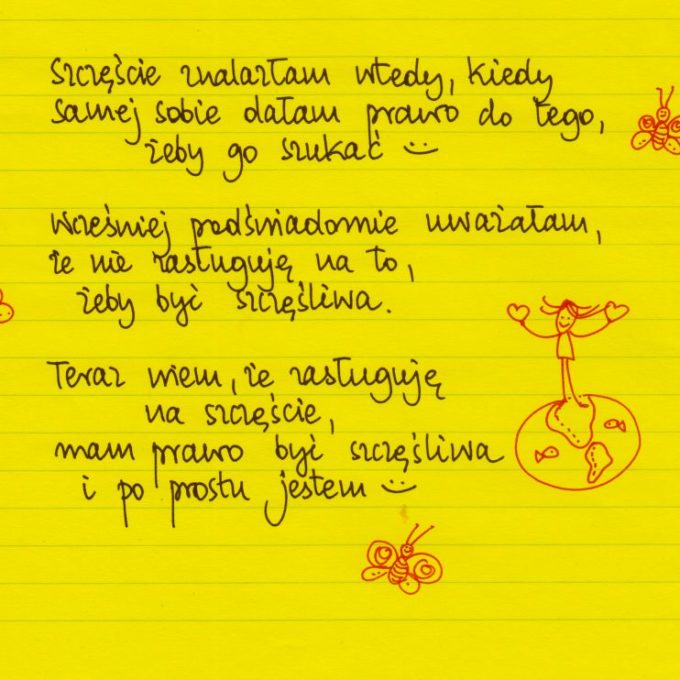 Szczęście znalazłam wtedy, kiedy
samej sobie dałam prawo do tego,
żeby go szukać :)
Wcześniej podświadomie uważałam,
że nie zasługuję na to,
żeby być szczęśliwa.
Teraz wiem, że zasługuję
na szczęście,
mam prawo być szczęśliwa
i po prostu jestem :)